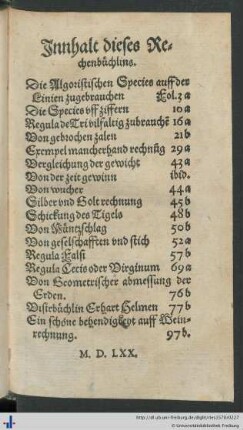 Innhalt dieses Re-
chenbüchlins.
Die Algoristischen Species auff der
Linien zugebrauchen Fol. 3 a
Die Species vff ziffern 10 a
Regula de Tri vilfaltig zubrauchē 16 a
Von gebrochen zalen 21 b
Exempel mancherhand rechnūg 29 a
Vergleichung der gewicht 43 a
Von der zeit gewinn ibid.
Von wucher 44 a
Silber vnd Golt rechnung 45 b
Schickung des Tigels 48 b
Von Müntzschlag 50 b
Von geselschafften vnd stich 52 a
Regula Falsi 57 b
Regula Cecis oder Virginum 69 a
Von Geometrischer abmessung der
Erden. 76 b
Visirbüchlin Erhart Helmen 77 b
Ein schöne behendigkeyt auff Wein-
rechnung. 97 b.
M. D. LXX.